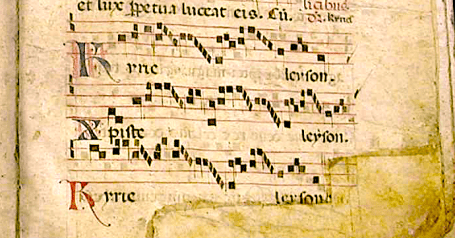 et lux ꝑpetua luceat eis. Cū.
Kyrie leyson.
Xpiste leyson.
Kyrie leyson.